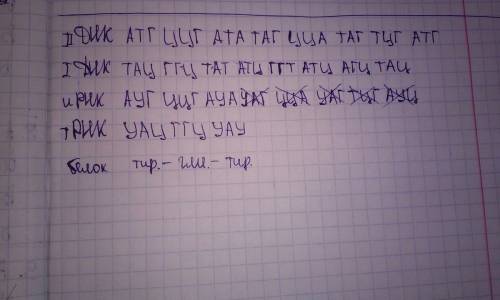 II ДНК АТГ ЦЦГ АТА ТАГ ЦЦА ТАГ ТЦГ АТГ
I ДНК ТАЦ ГГЦ ТАТ АТЦ ГГТ АТЦ АГЦ ТАЦ
и РНК АУГ ЦЦГ АУА УАГ ЦЦА УАГ ТЦГ АУЦ
т РНК УАЦ ГГЦ УАУ
белок тир.- гли.- тир.